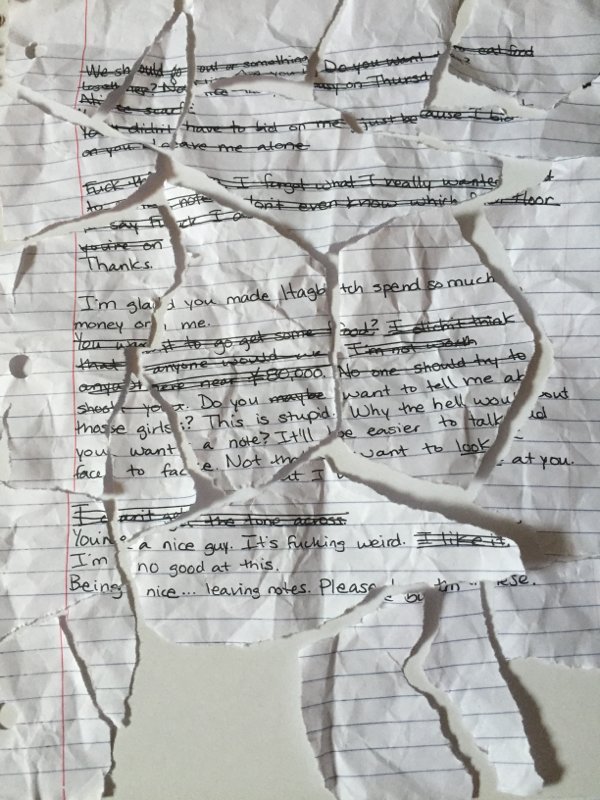 We should go out or something Do you want eat food
together? No on Thursd
You didn't have to bid on me just because I bid
on you. Leave me alone
Fuck th I forgot what I really wanted
to note don't even know which floor
say Fuck I
you're on
Thanks.
I'm glad you made Hagb tch spend so much
money on me.
You want to go get some food? I didn't think
that anyone would I'm not worth
anywhere near ¥80,000. No one should try to
shoot you. Do you maybe want to tell me ab out
those girls? This is stupid. Why the hell would
you want a note? It'll be easier to talk
face to face. Not tha t I want to look at you.
I can't get the tone across
You're a nice guy. It's fucking weird. I like it
I'm no good at this.
Being nice... leaving notes. Please b n these.